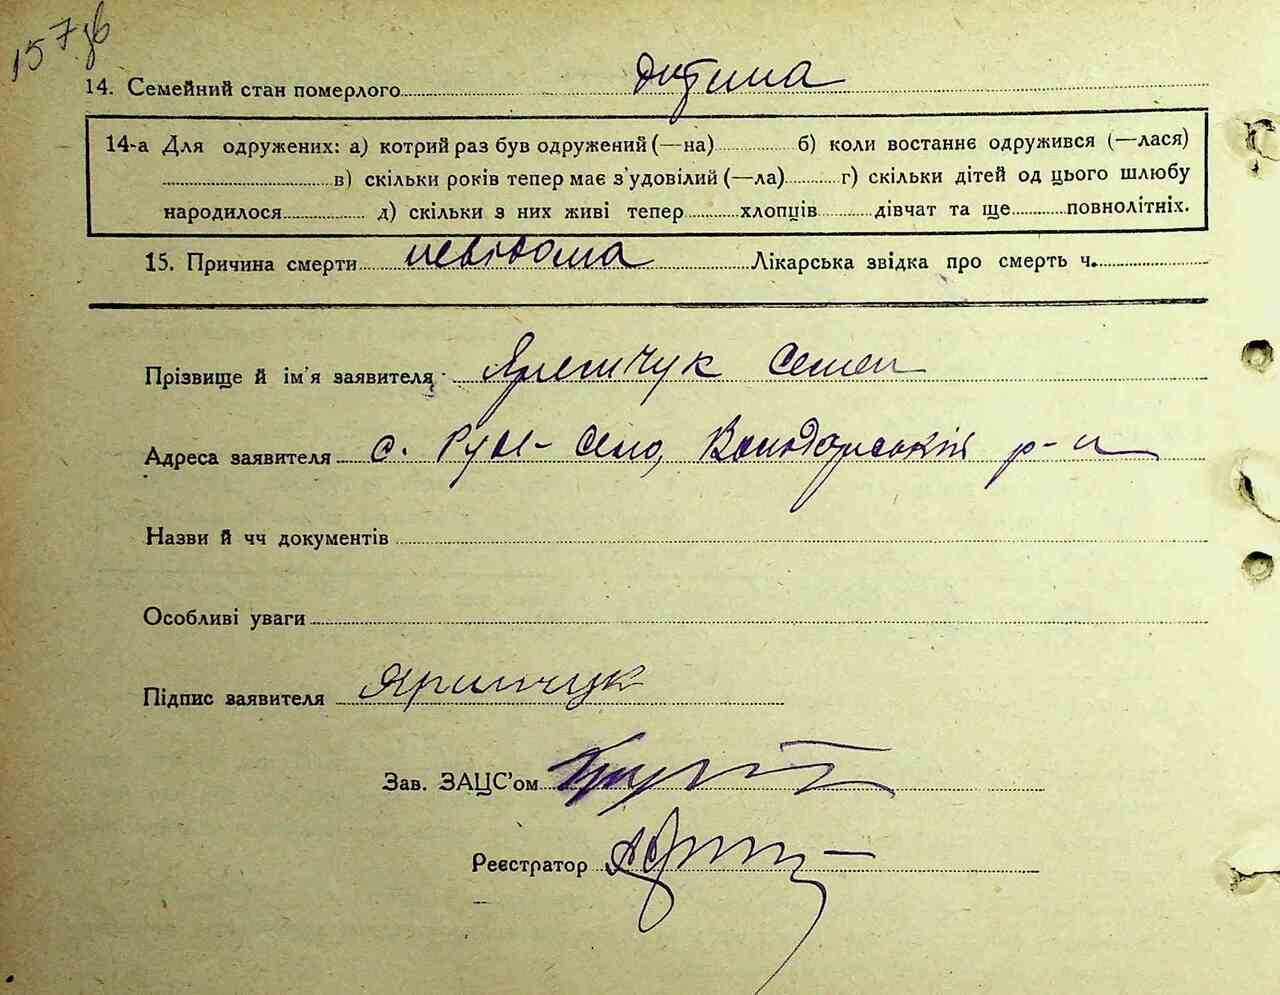 157зв
14. Семейний стан померлого дитина
14-а Для одружених: а) котрий раз був одружений (—на) б) коли востаннє одружився (—лася)
в) скільки років тепер має з'удовілий (—ла) г) скільки дітей од цього шлюбу
народилося д) скільки з них живі тепер хлопців дівчат та ще повнолітніх.
15. Причина смерти невідома Лікарська звідка про смерть ч.
Прізвище й ім'я заявителя Яремчук Семен
Адреса заявителя с. Руде-Село, Володарський р-н
Назви й чч документів
Особливі уваги
Підпис заявителя Яримчук
Зав. ЗАЦС'ом
Реєстратор